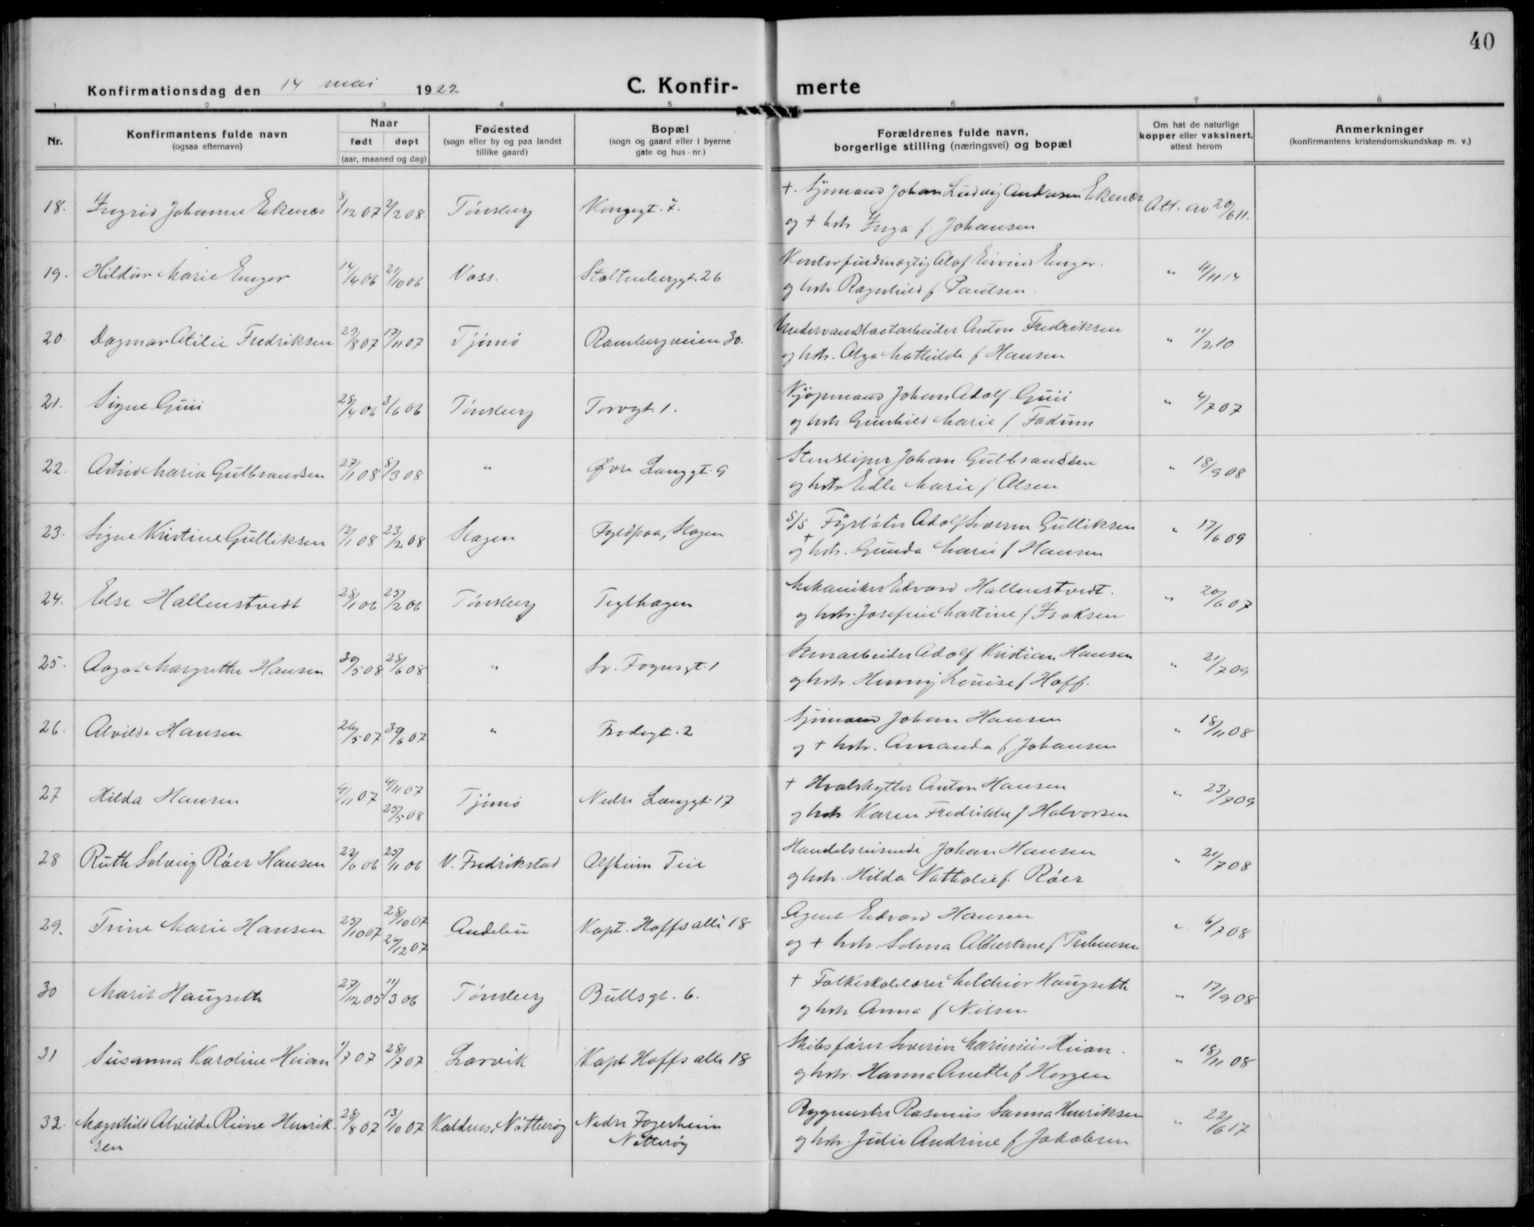 40
Konfirmationsdag den 14 mai 1922
C. Konfir-
merte
1 2 3 4 5 6 7 8
Nr.
Konfirmantens fulde navn
(ogsaa efternavn)
Naar
født døpt
(aar, maaned og dag)
Fødested
(sogn eller by og paa landet
tillike gaard)
Bopæl
(sogn og gaard eller i byerne
gate og hus-nr.)
Forældrenes fulde navn,
borgerlige stilling (næringsvei) og bopæl
Om hat de naturlige
kopper eller vaksinert,
attest herom
Anmerkninger
(konfirmantens kristendomskundskap m. v.)
18. Ingrid Johanne Ekenes /12 07 2/2 08 Tønsberg Kongegt. 7. + Sjømand Johan Ludvig Andersen Ekenes Att. av 20/6 11.
og + hstr Inga f. Johansen
19. Hildur Marie Enger 14/9 06 21/10 06 Voss. Stoltenberggt. 26 Kontorfuldmægtig Olaf Eivind Enger. " 4/11 14
og hstr. Ragnhild f.
20. Dagmar Otilie Fredriksen 29/8 07 17/11 07 Tjømø Rambergveien 30. Anton Fredriksen " 11/2 10
og hstr. Olga Mathilde f Hansen
21. Signe Guii 28/4 06 3/6 06 Tønsberg Torvgt. 1. Kjøpmand Johan Adolf Guii " 4/7 07
og hstr. Gunhild Marie f Fadum
22. Astrid Maria Gulbrandsen 27/1 08 8/3 08 " Øvre Langgt. 9 Stensliper Johan Gulbrandsen " 18/9 08
og hstr Edle Marie f Olsen
23. Signe Kristine Gulliksen 12/1 08 23/2 08 Skagen Fyldpaa, Skagen S/S Fyrbøter Adolf Severin Gulliksen " 17/6 09
og + hstr. Gunda Marie f Hansen
24. Else Hallenstvedt 28/1 06 25/2 06 Tønsberg Teglhagen Mekaniker Edvard Hallenstvedt. " 20/6 07
og hstr. Josefine Martine f Isaksen
25. Aagot Margrethe Hansen 30/5 08 28/6 08 " Sv. Foynsgt. 1 Stenarbeider Adolf Kristian Hansen " 21/7 09
og hstr. Henny Louise f Hoff.
26. Alvilde Hansen 26/5 07 30/6 07 " Frodegt. 2 Sjømand Johan Hansen " 18/11 08
og + hstr. Amanda f Johansen
27 Hilda Hansen 4/11 07 4/11 07 Tjømø Nedre Langgt. 17 + Hvalskytter Anton Hansen " 23/7 09
25/5 08 og hstr Karen Fredrikke f Halvorsen
28 Ruth Solveig Røer Hansen 22/6 06 25/11 06 V. Fredrikstad Alfheim Teie Handelsreisende Johan Hansen " 21/7 08
og hstr. Hilda Nathalie f. Røer
29. Trine Marie Hansen 25/10 07 28/10 07 Kapt. Hoffs alle 18 Agent Edvard Hansen " 6/7 08
26/12 07 og + hstr. Selma Albertine f
30 Marit Haugseth 27/12 05 11/3 06 Tønsberg Bullsgt. 6. + Folkeskolelærer Melchior Haugseth " 17/9 08
og hstr Anna f Nilsen
31 Susanna Karoline Heian 1/7 07 28/7 07 Larvik Kapt Hoffs alle 18 Skibsfører Severin Marinius Heian. " 18/11 08
og hstr. Hanna Anette f Horgen
32. Magnhild Alvilde Reine Henrik 28/8 07 13/10 07 Kaldnes, Nøtterøy Nedre Fogerheim Rygmester Rasmus Sanna Henriksen " 22/6 17
sen Nøtterøy og hstr. Julie Andrine f Jakobsen